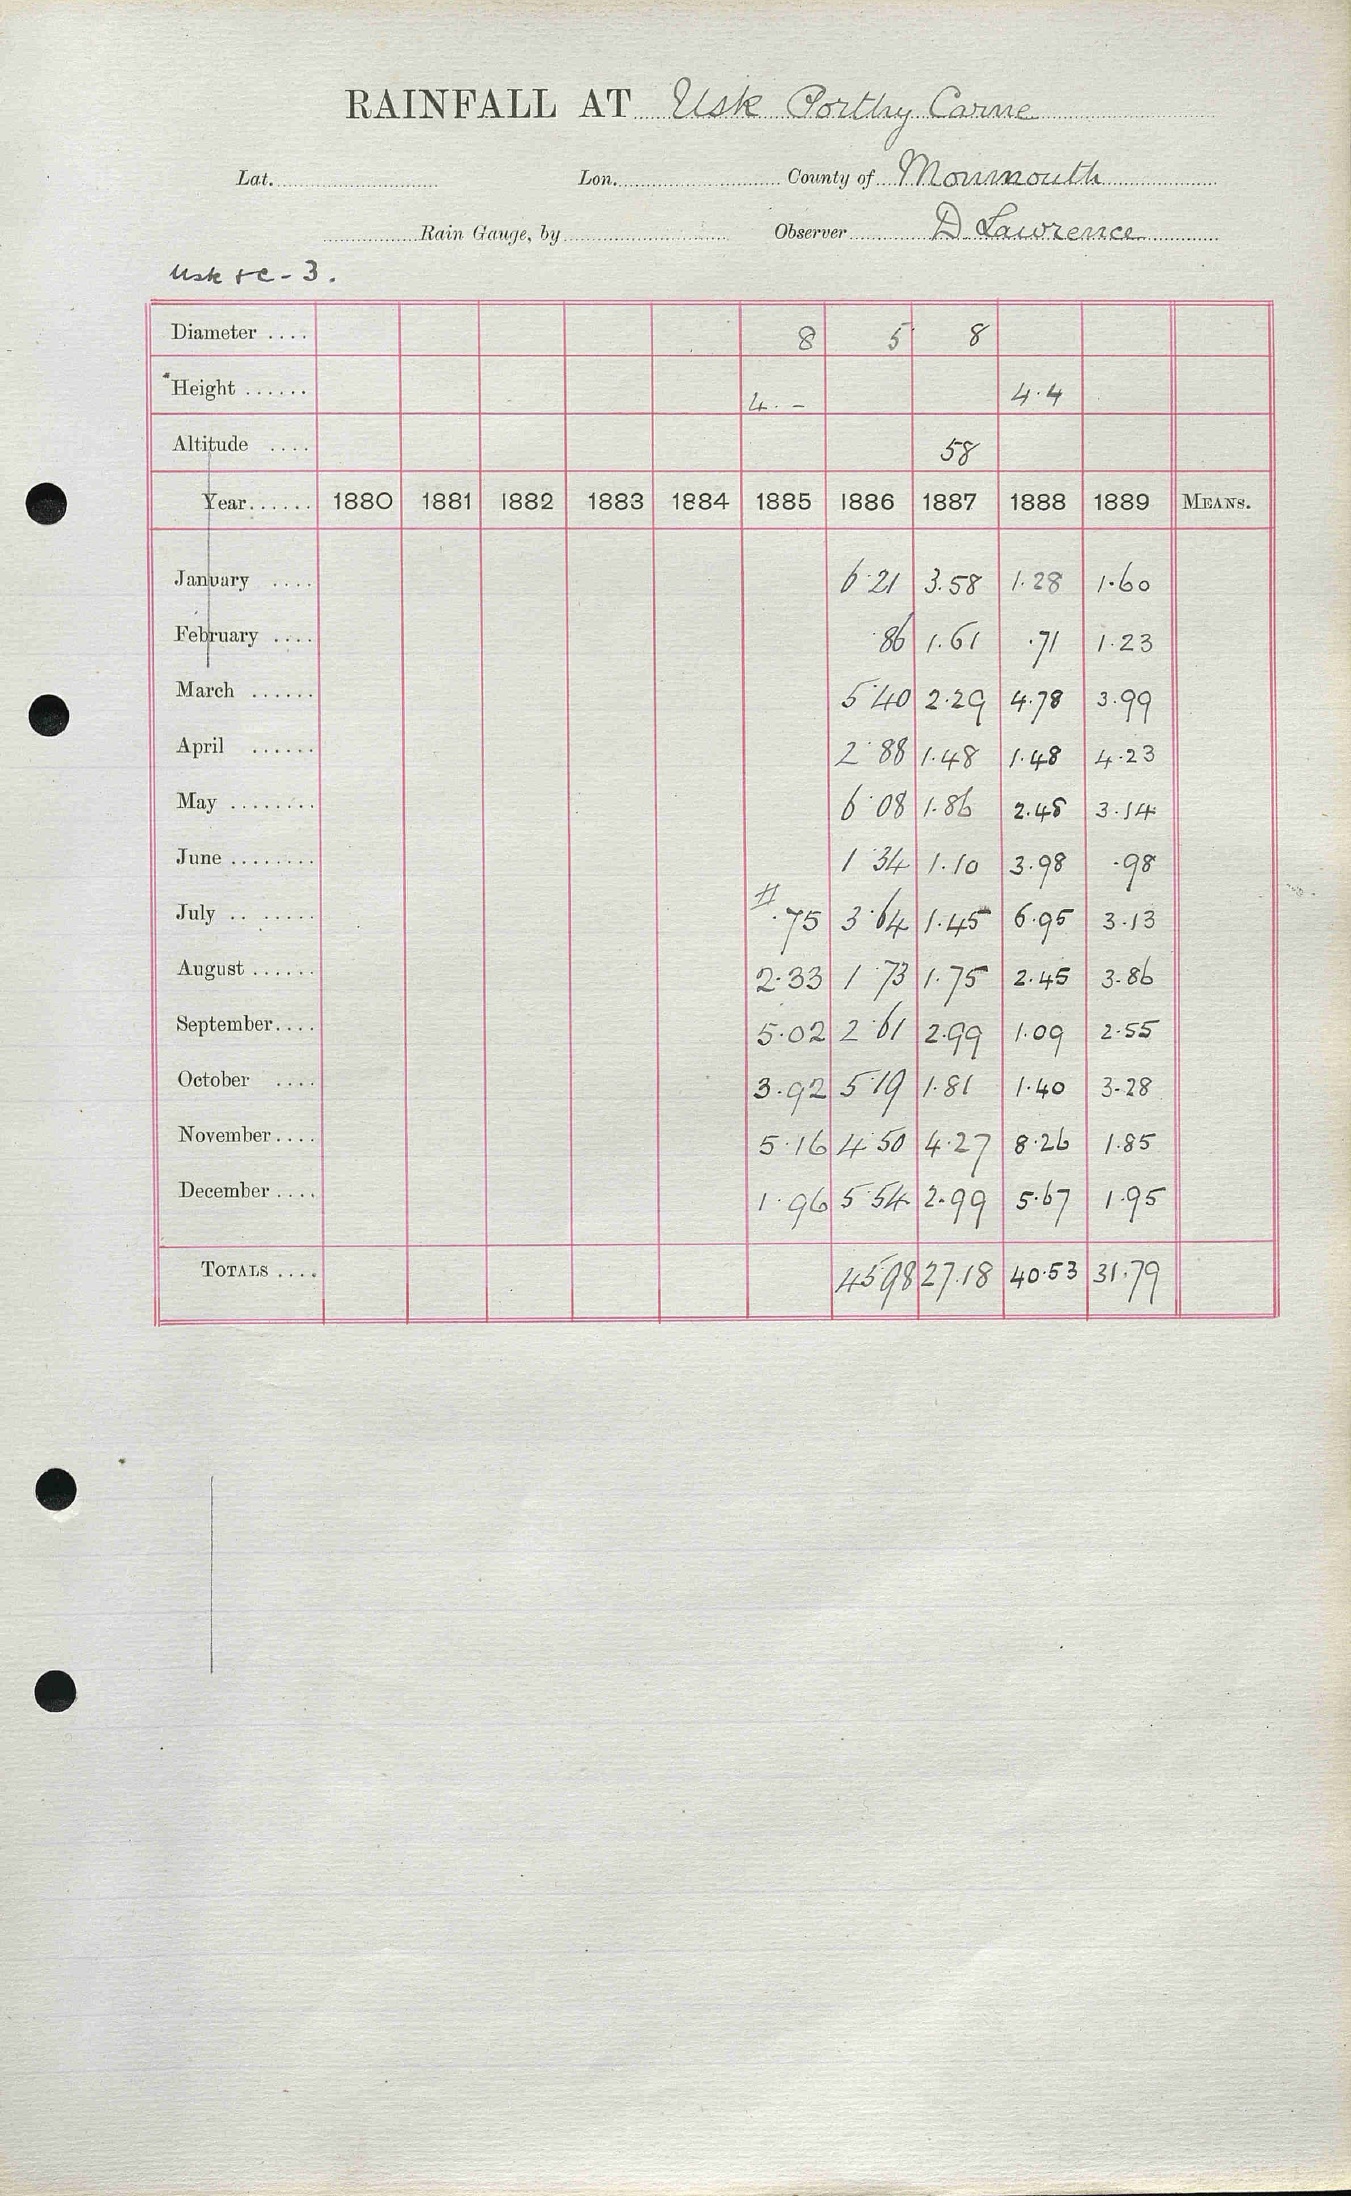 RAINFALL AT Usk Porthy Carne
Lat. Lon. County of Monmouth
Rain Gauge, by Observer D Lawrence
Usk &c - 3.
Diameter .... 8 5 8
Height ...... 4. - 4.4
Altitude .... 58
Year...... 1880 1881 1882 1883 1884 1885 1886 1887 1888 1889 MEANS.
January .... 6.21 3.58 1.28 1.60
February .... .86 1.61 .71 1.23
March ...... 5.40 2.29 4.78 3.99
April ...... 2.88 1.48 1.48 4.23
May ........ 6.08 1.86 2.48 3.14
June ........ 1 34 1.10 3.98 .98
July ........ # .75 3.64 1.45 6.95 3.13
August ...... 2.33 1.73 1.75 2.45 3.86
September.... 5.02 2.61 2.99 1.09 2.55
October .... 3.92 5.19 1.81 1.40 3.28
November.... 5.16 4.50 4.27 8.26 1.85
December.... 1.96 5.54 2.99 5.67 1.95
TOTALS .... 45.98 27.18 40.53 31.79